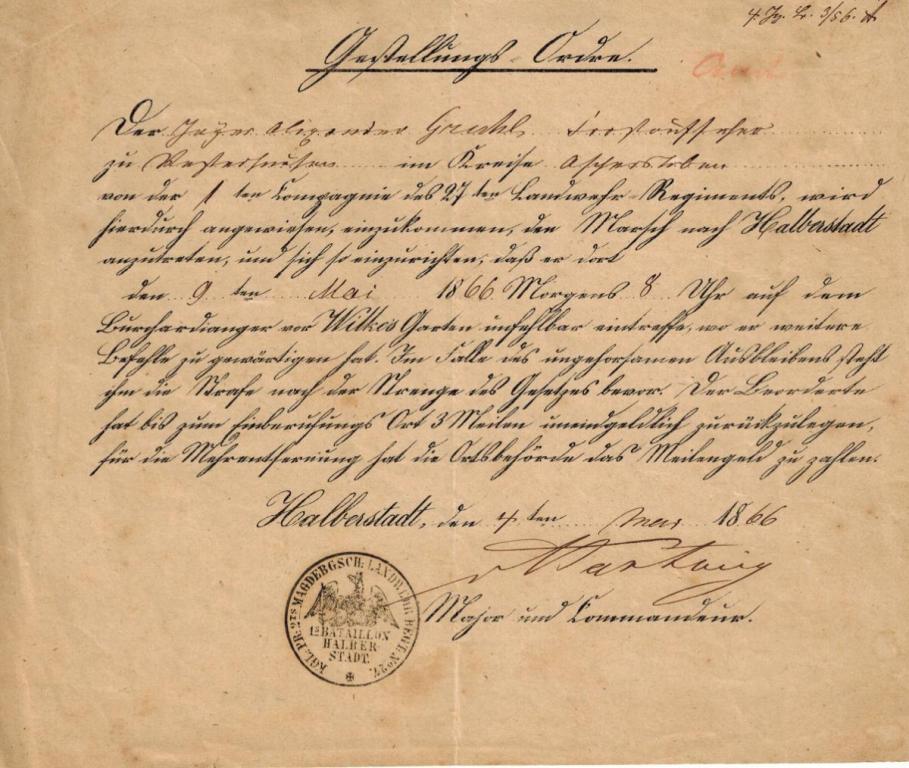 4. Jg. Br. 3/56.
Gestellungs-Ordre.
Der Jäger Alexander Forstaufseher
zu im Kreise Aschersleben
von der 1 ten Compagnie des 27ten Landwehr-Regiments, wird
hierdurch angewiesen, einzukommen, den Marsch nach Halberstadt
anzutreten, und sich so einzurichten, daß er dort
den 9 ten Mai 1866 Morgens 8 Uhr auf dem
Burchardianger vor Wilkes Garten unfehlbar eintreffe, wo er weitere
Befehle zu gewärtigen hat. Im Falle des ungehorsamen Ausbleibens steht
ihm die Strafe nach der Strenge des Gesetzes bevor. Der Beorderte
hat bis zum Einberufungs Ort 3 Meilen uneingeldlich zurückzulegen,
für die Mehrentfernung hat die Ortsbehörde das Meilengeld zu zahlen.
Halberstadt, den 4 ten Mai 1866
v Hartwig
Major und Commandeur.
KGL: PR: 2TS MAGDEBGSCH: LANDWEHR REGT. No 27.
1S BATAILLON
HALBER-
STADT.